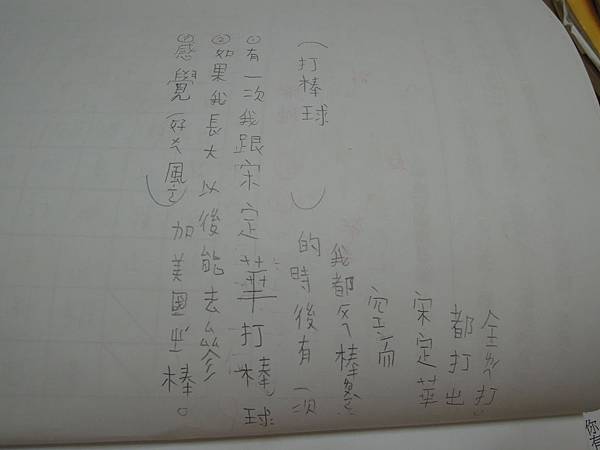 （打棒球）的時後有一次
我都棒
空而
宋定華
都打出
全ㄌ打
①有一次我跟宋定華打棒球
②如果我長大以後能去參
加美國ㄓ棒。
③感覺（好風）
你有